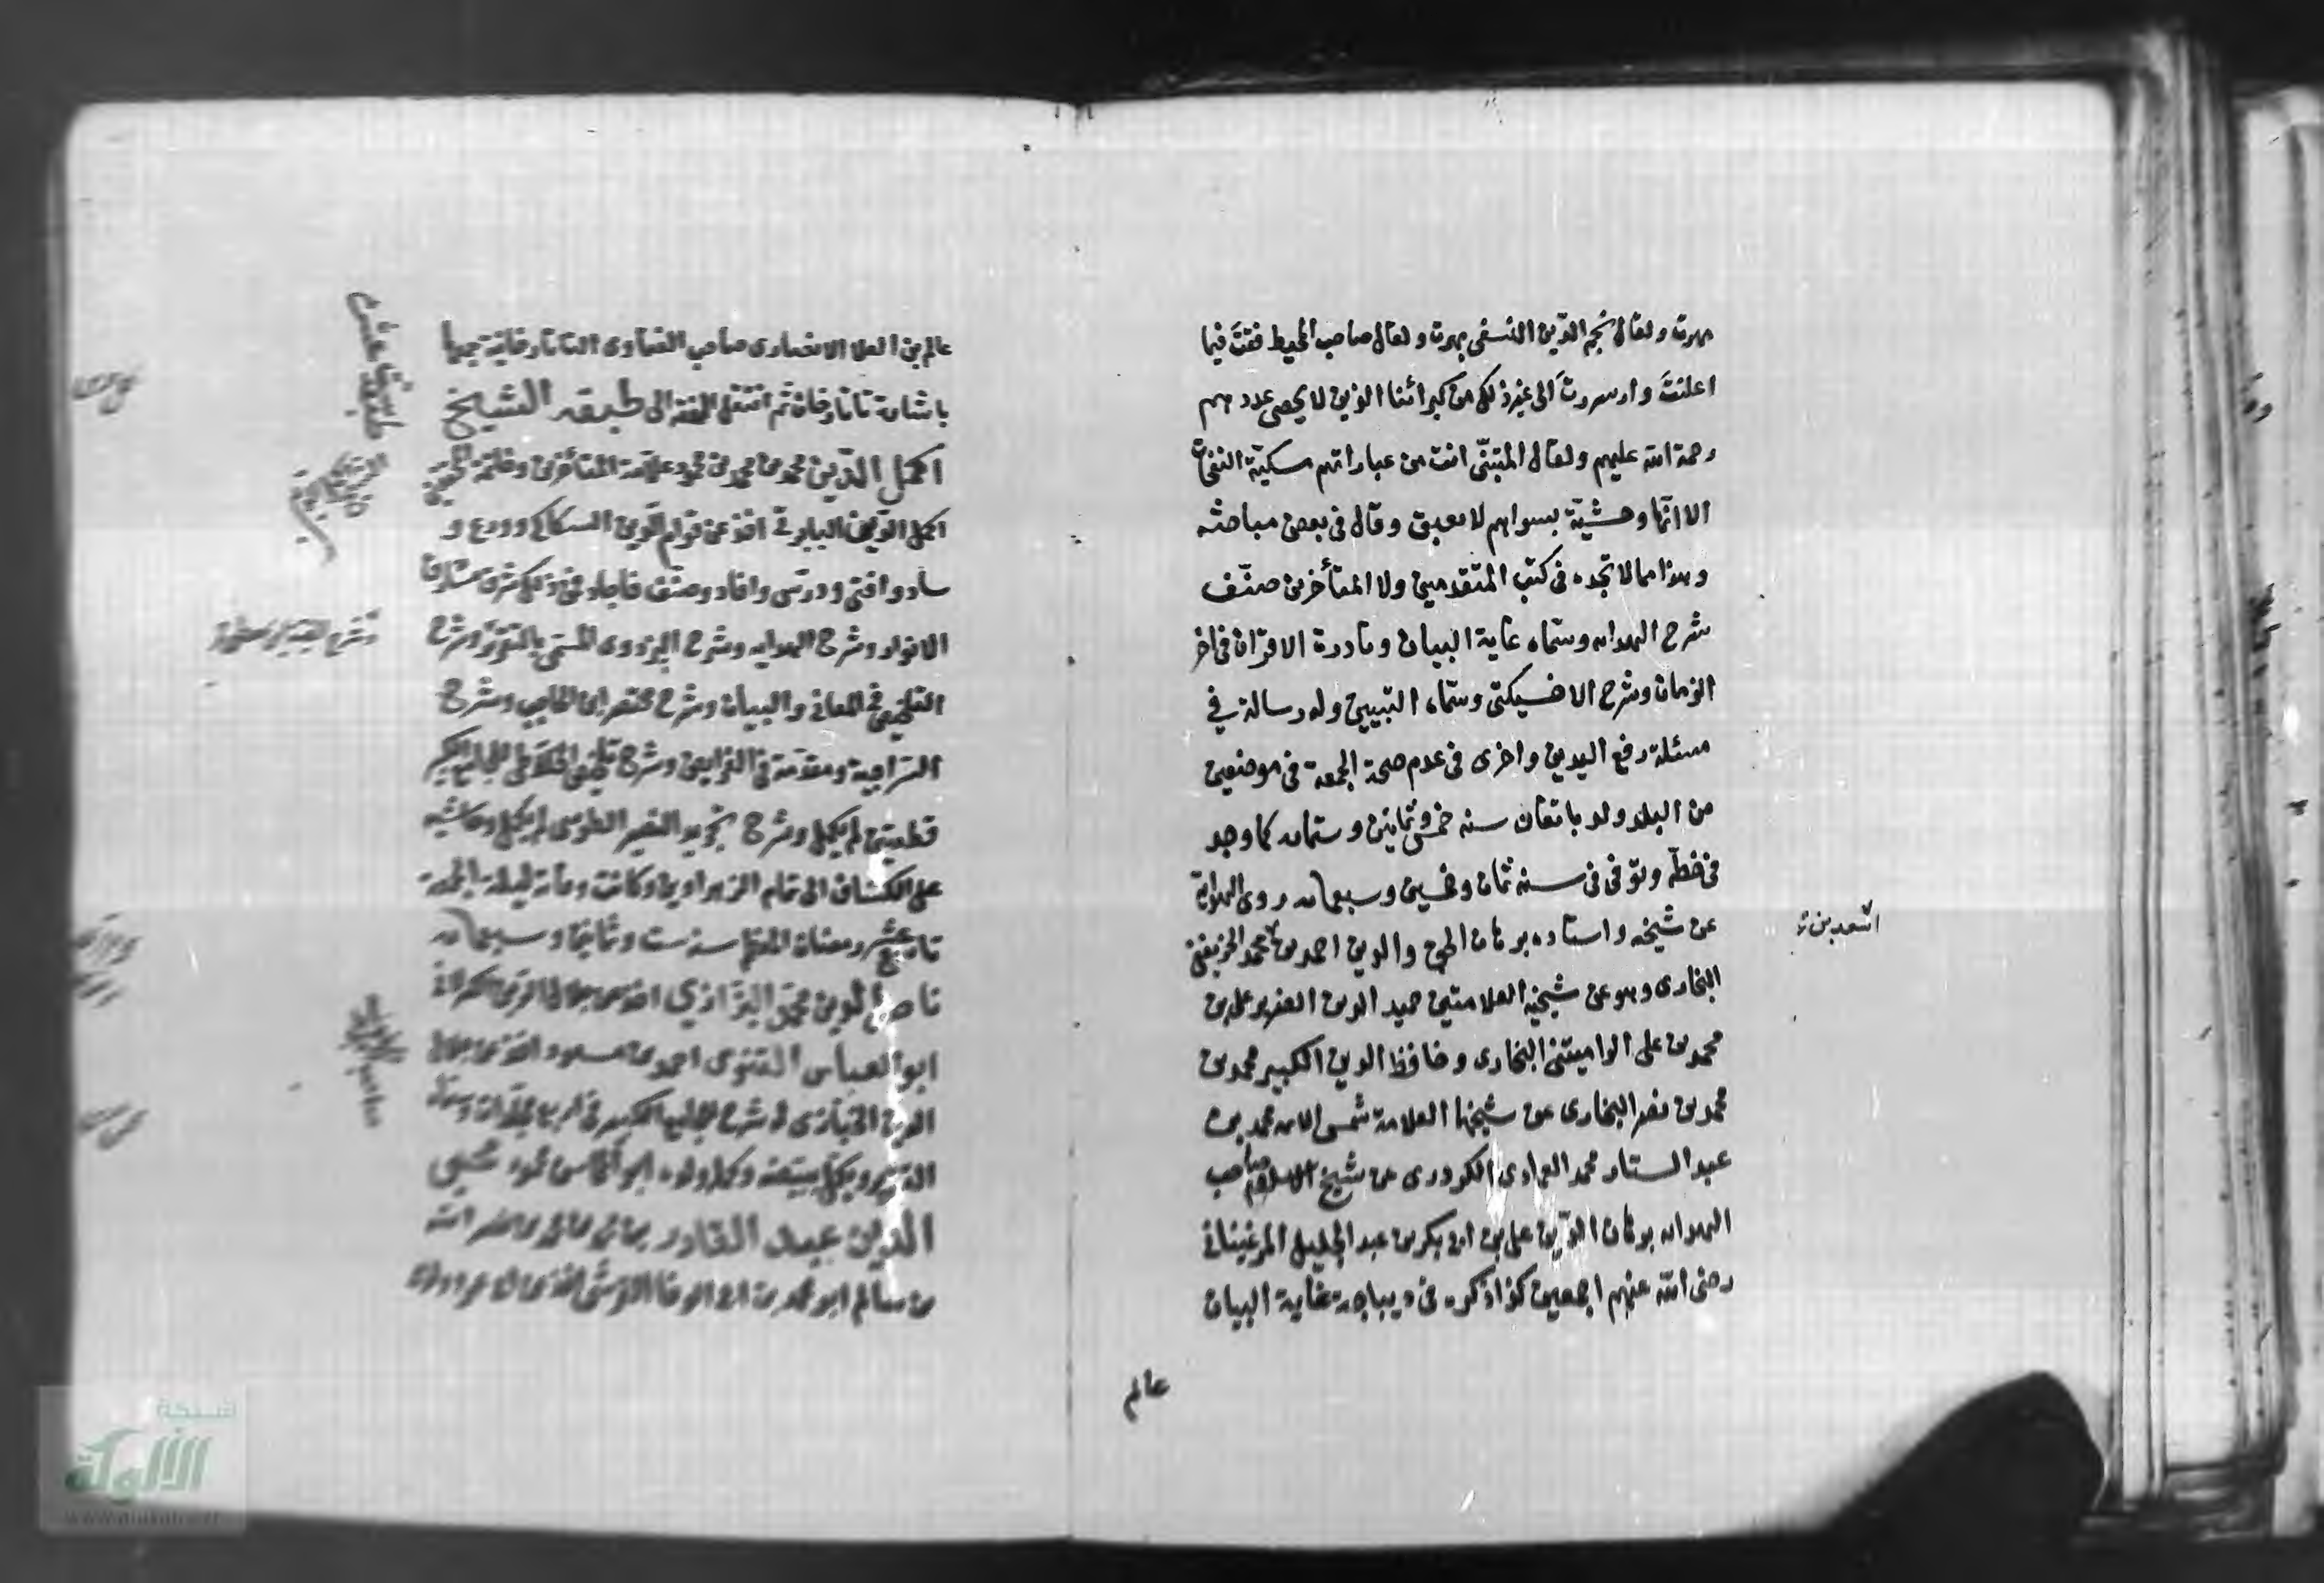 بهرت ولقال نجم الدين النسفي بهرت ولقال صاحب المحيط فقت فيما
اعلنت واسررت الى غير ذلك من كبرائنا الذين لا يحصى عددهم
رحمة الله عليهم ولقال المتنبّي انت من عباراتهم مسكيّة النفحات
الا انّها وحشيّة بسواهم لا تعبق وقال في بعض مباحثه
وهذا مما لا تجده في كتب المتقدمين ولا المتأخرين صنّف
شرح الهدايه وسمّاه غاية البيان ونادرة الاقران في اخر
الزمان وشرح الاخسيكتي وسمّاه التبيين وله رسالة في
مسئلة رفع اليدين واخرى في عدم صحة الجمعة في موضعين
من البلد ولد باتقان سنه خمس وثمانين وستمايه كما وجد
في خطّه وتوفي في سنه ثمان وخمسين وسبعمايه روى الهداية
عن شيخه واستاده برهان الحق والدين احمد بن محمد الخريفغني
اسعد بن
البخارى وهو عن شيخيه العلامتين حميد الدين الضرير على بن
محمد بن على الراميتنى البخارى وحافظ الدين الكبير محمد بن
محمد بن نصر البخارى عن شيخهما العلامة شمس الائمه محمد بن
عبد الستار محمد العمادى الكردرى عن شيخ الاسلام صاحب
الهدايه برهان الدّين على بن ابى بكر بن عبد الجليل المرغيناني
رضى الله عنهم اجمعين كذا ذكره في ديباجة غاية البيان
عالم
عالم بن العلا الانصارى صاحب الفتاوى التاتارخانية جمعها
باشارة تاتارخان ثم انتقل الفقه الى طبقه الشيخ
اكمل الدّين محمد بن محمد بن محمود علامة المتأخرين وخاتمة المحققين
اكمل الدّين البابرتي اخذ عن قوام الدّين السكاكي وبرع و
ساد وافتى ودرّس وافاد وصنّف فاجاد فمن ذلك شرح مشارق
الانوار وشرح الهدايه وشرح البزدوى المسمّى بالتقرير وشرح
التلخيص في المعاني والبيان وشرح مختصر ابن الحاجب وشرح
السّراجية ومقدّمة في الفرايض وشرح تلخيص الخلاطى للجامع الكبير
قطعتين لم يكمل وشرح تجريد النصير الطوسى لم يكمل وحاشيه
على الكشاف الى تمام الزهراوين وكانت وفاته ليلة الجمعة
تاسع عشر رمضان المعظم سنه ست وثمانين وسبعمايه
ناصر الدين محمد البزازي اخذ عن جلال الدين الكرلانى
ابو العباس القنوى احمد بن مسعود اخذ عن جلال
الدين الخبازى له شرح الجامع الكبير في اربع مجلدات وسمّاه
التقرير ولم يكمل تبييضه وكمله ولده ابو المحاسن محمود محيى
الدين عبد القادر بن محمد بن محمد بن نصر الله
بن سالم ابو محمد بن ابى الوفا القرشى